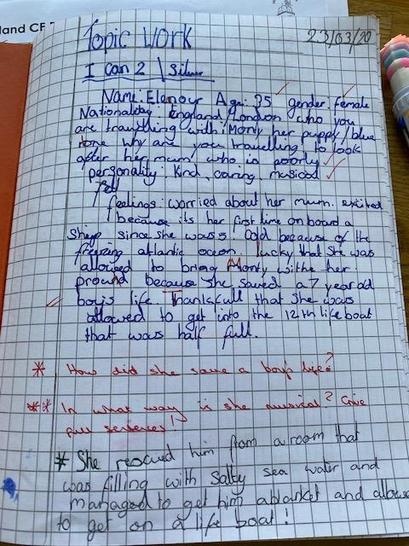 land CF
Topic Work
23/03/20
I can 2 \ Silver
Name: Elenour Age: 35 gender female
Nationaliday England/London who you
are travlling with: Monty her puppy/blue
rone why are you travelling to look
after her mum who is poorly
personality kind, caring musicod
feelings: worried about her mum. excited
because its her first time on board a
Shep since she was 5. Cold because of the
freezing atlantic ocean. lucky that she was
allowed to bring Monty withe her.
pround because she saved a 7 year old
boys life. Thankfull that she was
allowed to get into the 12th life boat
that was half full.
* How did she save a boy's life?
** In what way is she musical? Give
full sentences!
* She rescued him from a room that
was filling with Salty sea water and
managed to get him ablanket and allow
to get on a life boat!